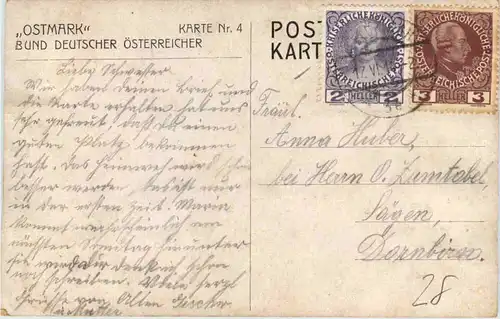 „OSTMARK“ KARTE Nr. 4
BUND DEUTSCHER ÖSTERREICHER
POST
KART
KAISERLICHE KÖNIGLICHE
ÖSTERREICHISCHE POST
2 HELLER 2
KAISERLICHE KÖNIGLICHE
ÖSTERREICHISCHE POST
3 HELLER 3
Liebe Schwester
Wir haben deinen Brief und
die Karte erhalten hat uns
sehr gefreut, daß du einen
guten Platz bekommen
hast. Das Heimweh wird schon
besser werden das ist nur
in der ersten Zeit. Maria
kommt wahrscheinlich am
nächsten Sonntag hinunter
sie wird dir denk ich schon
noch schreiben. Viele herzl
Grüsse von Allen
Mutter
Fräul.
Anna Huber,
bei Herrn O. Zumtobel,
Sägen,
Dornbirn.
28